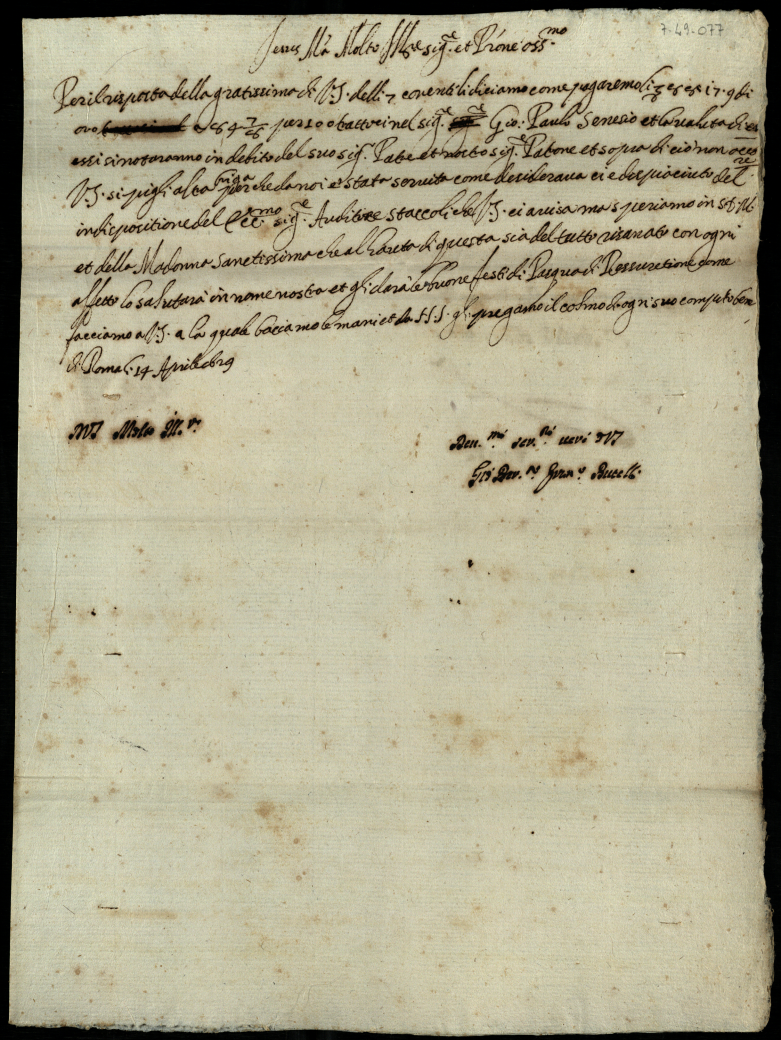 7-49-077
Jesus Ma Molto Ill.re sig.re et Prone oss.mo
Per il risposta della gratissima di V.S. delli 7 corente li diciamo come pagaremo li di
oro a 64 per 100 battuti nel sig.re Gio. Paulo Senesio et la valuta di
essi si notaranno in debito del suo sig. Pate et nosto sig.re Patone et sopra di cio non occore
V.S. si pigli alta briga perche da noi e stata servita come desiderava ci e dispiaciuto del
indispositione del Ecc.mo sig.re Auditore staccoli che V.S. ci avisa ma speriamo in
et della Madonna Santissima che al hauta di questa sia del tutto risanato con ogni
affetto lo salutara in nome nosto et gli dara le buone festi di Pasqua di Ressuretione come
facciamo a V.S. a la quale bacciamo le mani et da N.S. gli pregamo il colmo de ogni suo compiuto ben
di Roma li 14 Aprile
DVS Molto M.
ser. veri DVS
Gio